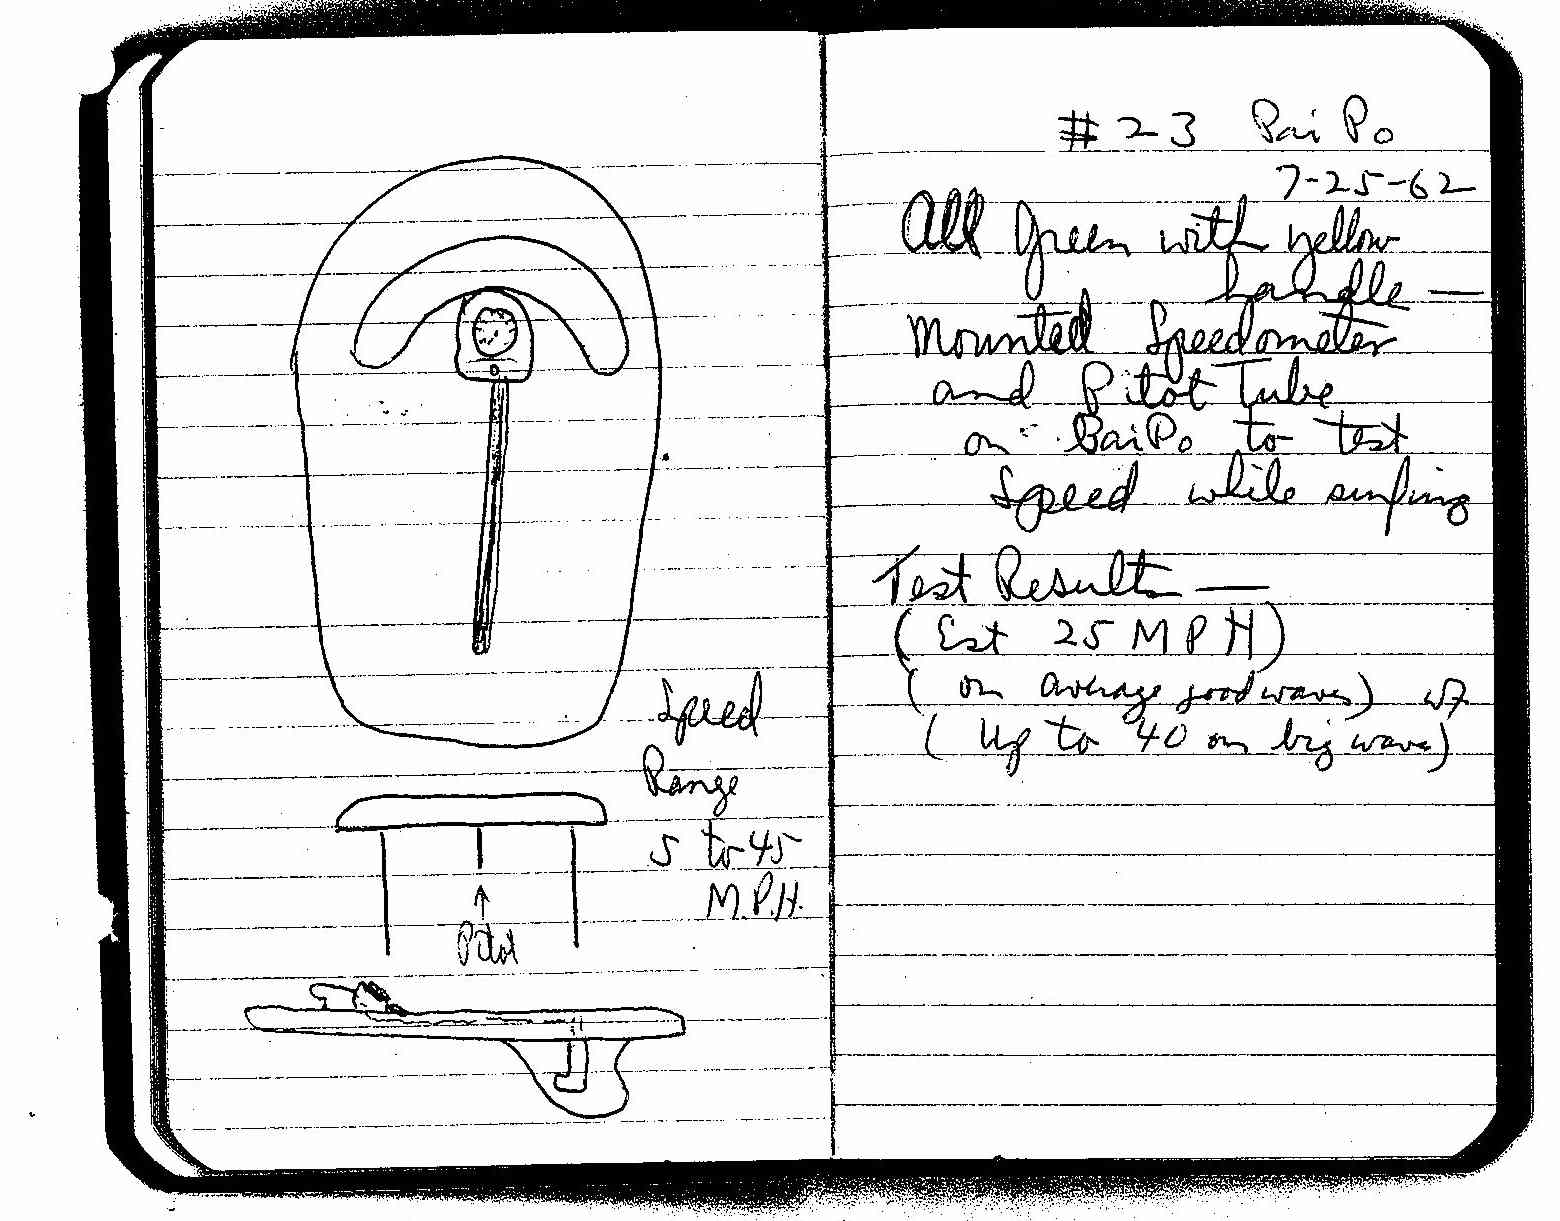 Speed
Range
5 to 45
M.P.H.
Pitot
#23 Pai Po
7-25-62
All green with yellow
handle —
Mounted Speedometer
and Pitot Tube
on PaiPo to test
Speed while surfing
Test Results —
(Est 25 MPH)
(on average good waves)
(Up to 40 on big wave)